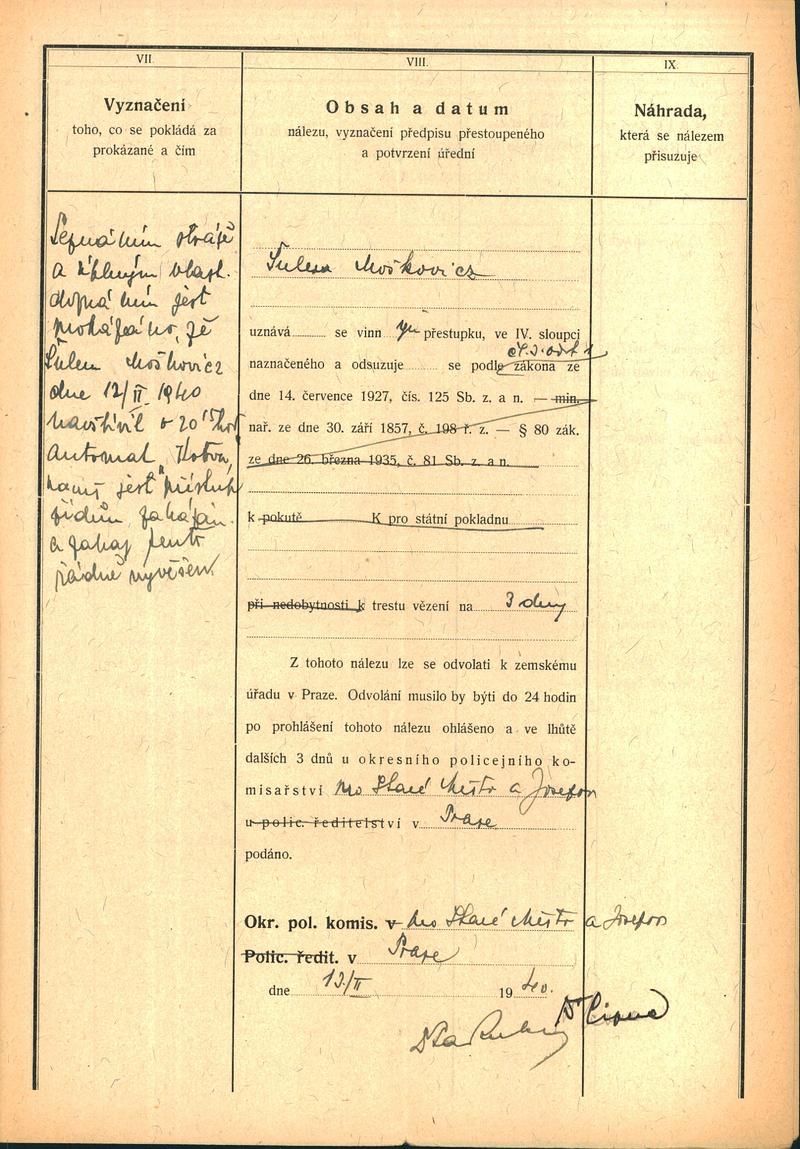 VII.
Vyznačení
toho, co se pokládá za
prokázané a čím
Seznáním stráže
a vlast.
doznáním jest
prokázáno, že
Šulem Moškovicz
dne 12/II 1940
navštívil o 20 15 hod
automat „Kotva“,
kamž jest přístup
židům zakázán
a zákaz tento
řádně vyvěšen.
VIII.
Obsah a datum
nálezu, vyznačení předpisu přestoupeného
a potvrzení úřední
Šulem Moškovicz
uznává se vinným přestupku, ve IV. sloupci
čl. 3. odst. 1
naznačeného a odsuzuje se podle zákona ze
dne 14. července 1927, čís. 125 Sb. z. a n. — min.
nař. ze dne 30. září 1857, č. 198 ř. z. — § 80 zák.
ze dne 26. března 1935, č. 81 Sb. z. a n.
k pokutě K pro státní pokladnu
při nedobytnosti k trestu vězení na 3 dny
Z tohoto nálezu lze se odvolati k zemskému
úřadu v Praze. Odvolání musilo by býti do 24 hodin
po prohlášení tohoto nálezu ohlášeno a ve lhůtě
dalších 3 dnů u okresního policejního ko-
misařství pro Staré Město a Josefov
u polic. ředitelství v Praze
podáno.
Okr. pol. komis. v pro Staré Město a Josefov
Polic. ředit. v Praze
dne 13/II 1940.
IX.
Náhrada,
která se nálezem
přisuzuje